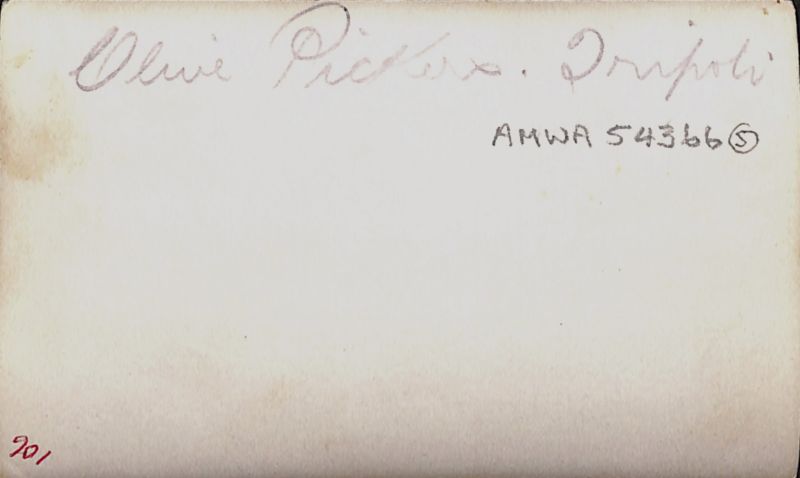 Olive Pickers. Tripoli
AMWA 54366 ⑤
201